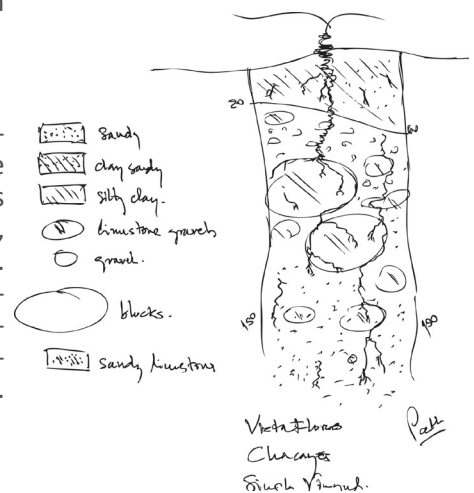 sandy
clay sandy
silty clay.
limestone gravels
gravel.
blocks.
sandy limestone
20
60
150
190
Vista Flores
Chacayes
Single Vineyard.